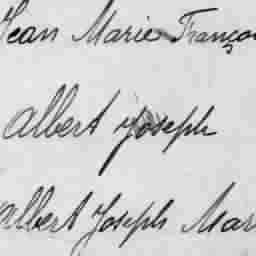 Jean Marie Franço
Albert Joseph
Albert Joseph Mar